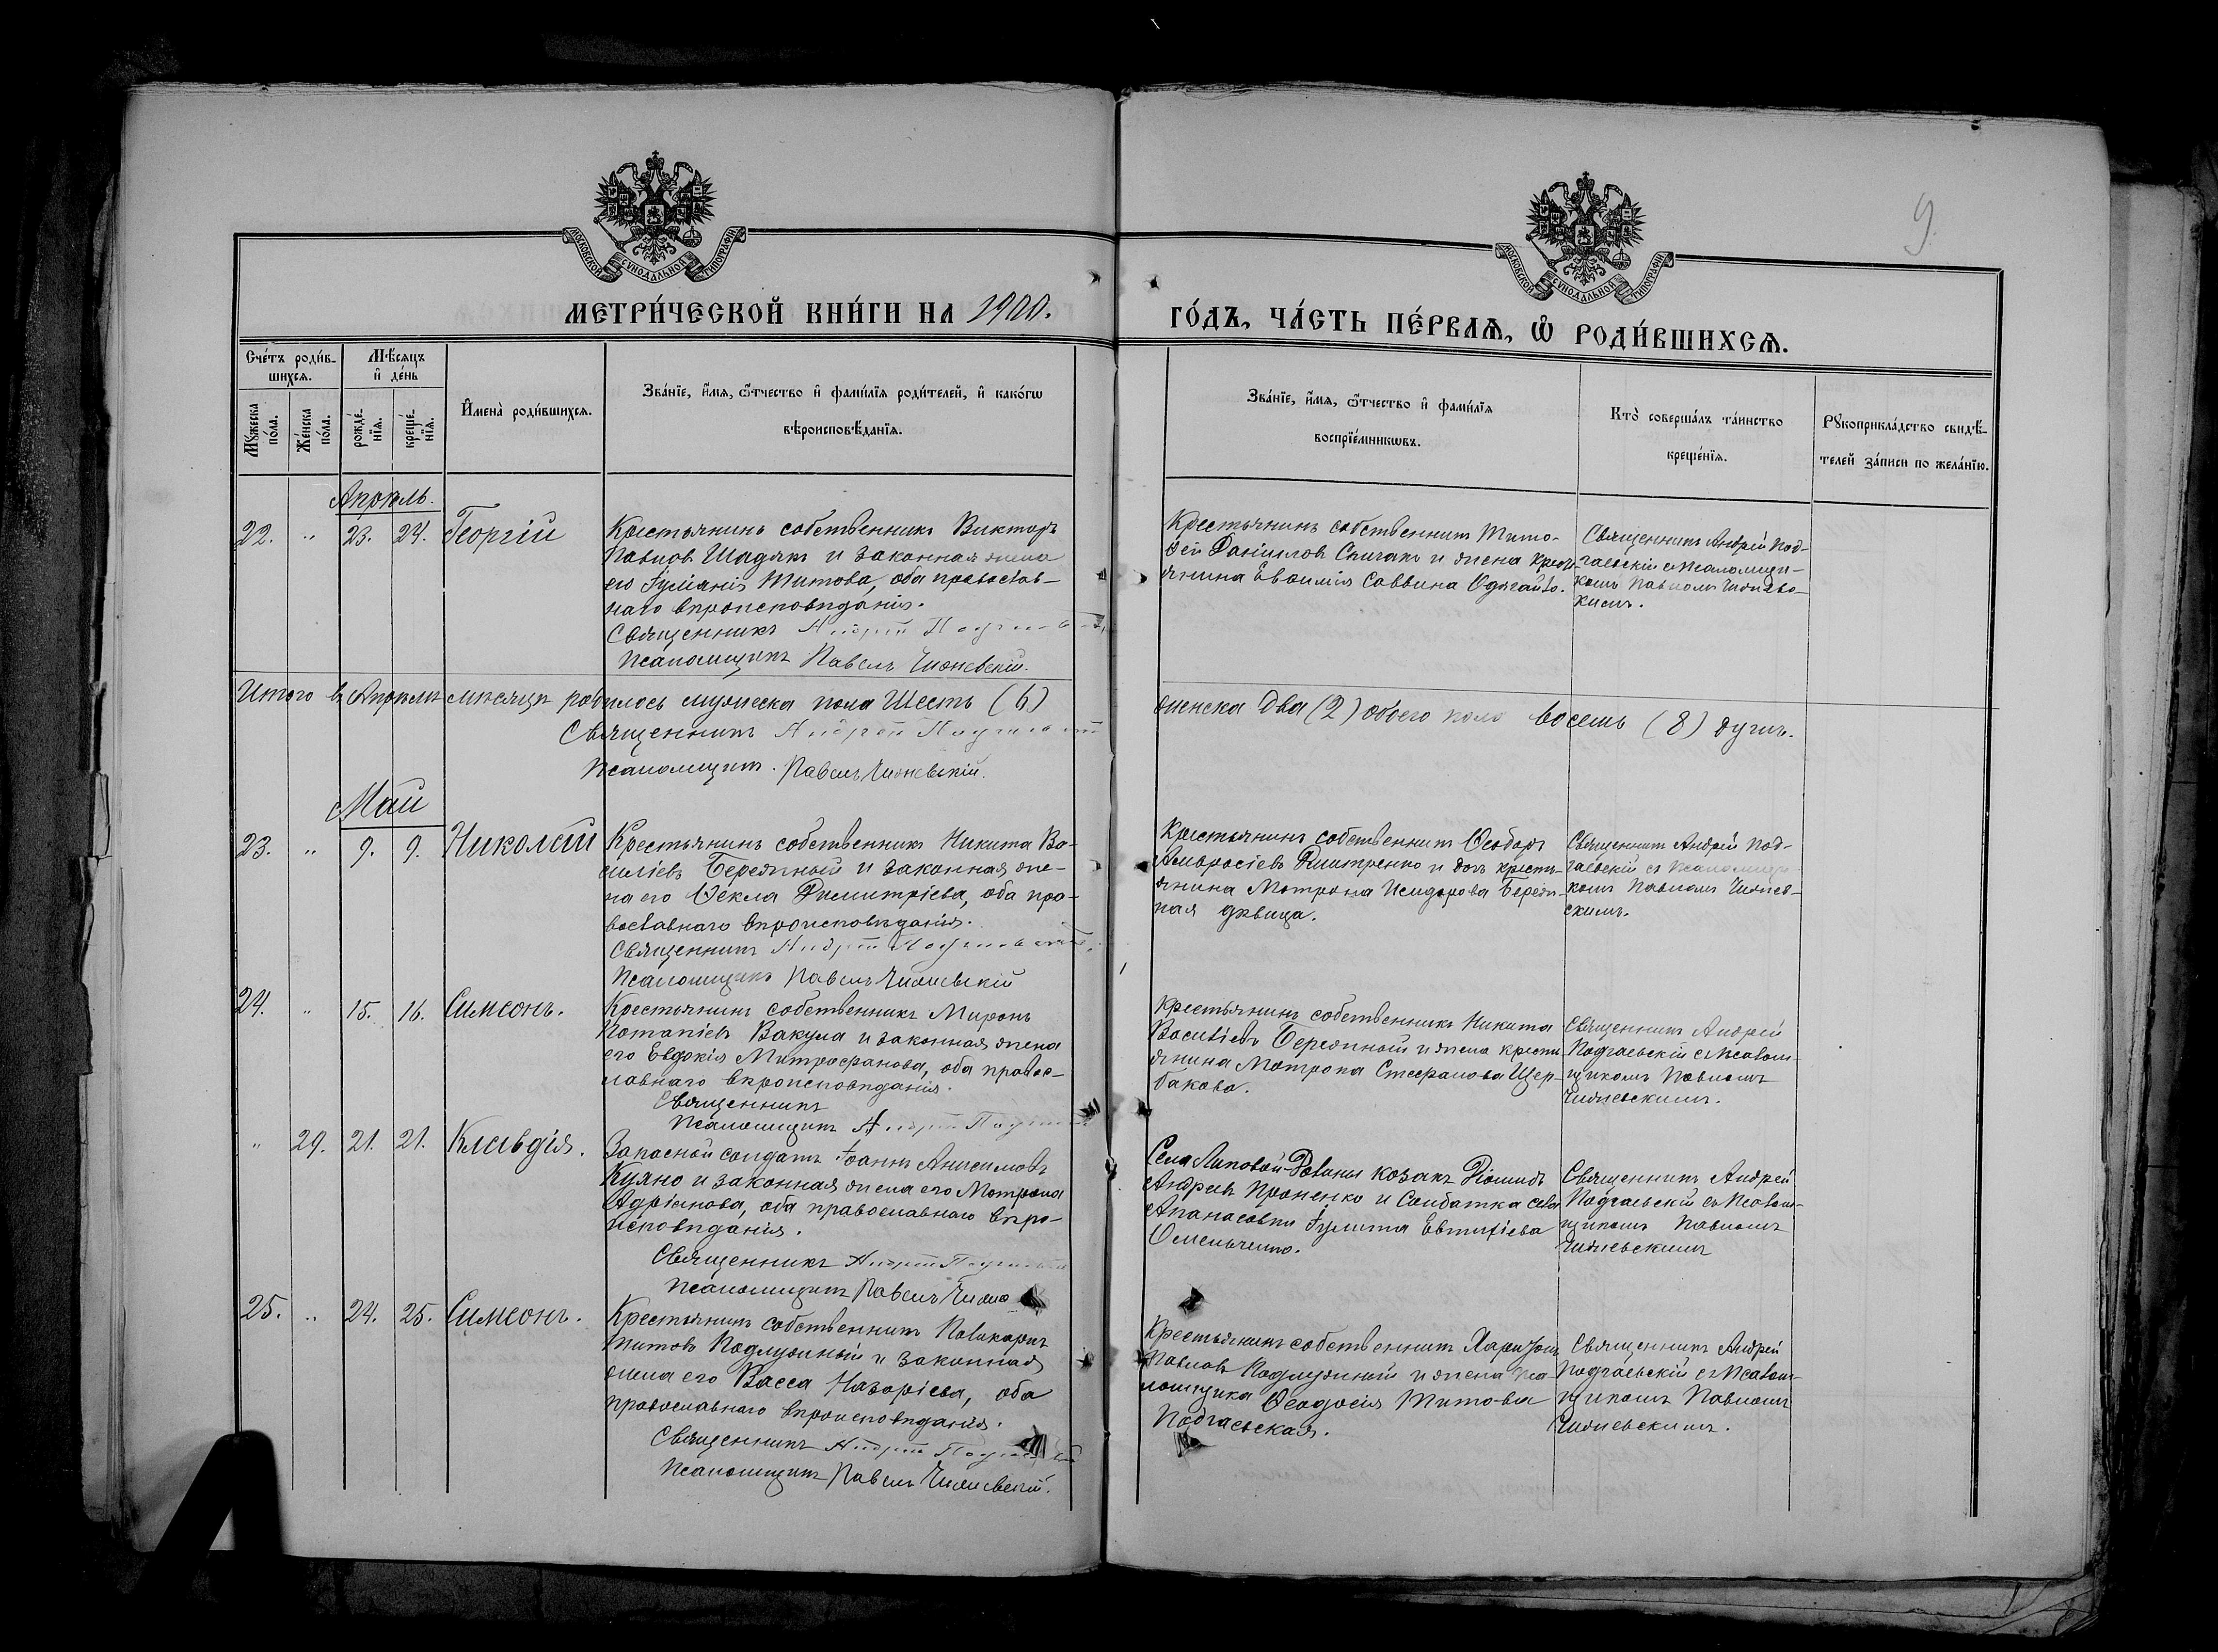 9.
МОСКОВСКОЙ СѴНОДАЛЬНОЙ ТИПОГРАФІИ
МОСКОВСКОЙ СѴНОДАЛЬНОЙ ТИПОГРАФІИ
МЕТРИ́ЧЕСКОЙ КНИ́ГИ НА 1900.
ГО́ДЪ, ЧА́СТЬ ПЕ́РВАѦ, Ѽ РОДИ́ВШИХСѦ.
Сче́тъ роди́в-
шихсѧ.
Мѣ́сяцъ
и҆ де́нь
Мꙋ́жеска
по́ла.
Же́нска
по́ла.
рожде́-
нїѧ.
креще́-
нїѧ.
И҆мена̀ роди́вшихсѧ.
Зва́нїе, и҆́мѧ, ѻ҆́тчество и҆ фами́лїѧ роди́телей, и҆ како́гѡ
вѣроисповѣ́данїѧ.
Зва́нїе, и҆́мѧ, ѻ҆́тчество и҆ фами́лїѧ
воспрїе́мникѡвъ.
Кто̀ соверша́лъ та́инство
креще́нїѧ.
Рꙋкоприкла́дство свидѣ́-
телей за́писи по жела́нїю.
Апрѣль.
22. " 23. 24. Георгій
Крестьянинъ собственникъ Викторъ
Павловъ Шадякъ и законная жена
его Іуліанія Титова, оба православ-
наго вѣроисповѣданія.
Священникъ Андрей
Псаломщикъ Павелъ Чижевскій.
Крестьянинъ собственникъ Тимо-
фей Даніиловъ Спичакъ и жена крест-
янина Евѳимія Саввина
Священникъ Андрей Под-
гаевскій съ псаломщи-
комъ Павломъ Чижевс-
кимъ.
Итого въ Апрѣлѣ мѣсяцѣ родилось мужеска пола Шесть (6)
женска два (2) обоего пола восемь (8) душъ.
Священникъ Андрей
Псаломщикъ. Павелъ Чижевскій.
Май
23. " 9. 9. Николай
Крестьянинъ собственникъ Никита Ва-
силіевъ Бережный и законная же-
на его Ѳекла Димитріева, оба пра-
вославнаго вѣроисповѣданія.
Священникъ Андрей
Псаломщикъ Павелъ Чижевскій
Крестьянинъ собственникъ Ѳеодоръ
Амвросіевъ Дмитренко и дочь крестья-
янина Матрона Исидорова Береж-
ная дѣвица.
Священникъ Андрей Под-
гаевскій съ псаломщи-
комъ Павломъ Чижев-
скимъ.
24. " 15. 16. Симеонъ.
Крестьянинъ собственникъ Миронъ
Вакула и законная жена
его Евдокія Митрофанова, оба правос-
лавнаго вѣроисповѣданія.
Священникъ
Псаломщикъ Андрей
Крестьянинъ собственникъ Никита
Василіевъ Бережный и жена крестья-
янина Матрона Стефанова Щер-
бакова.
Священникъ Андрей
Подгаевскій съ псалом-
щикомъ Павломъ
Чижевскимъ.
" 29. 21. 21. Клавдія.
Запасной солдатъ Іоаннъ Анисимовъ
и законная жена его Матрона
Адріанова, оба православнаго вѣро-
исповѣданія.
Священникъ Андрей
Псаломщикъ Павелъ
Села Липовой Долины козакъ Діомидъ
Андреевъ Проненко и Солдатка села
Апанасовки Іулитта Евтихіева
Омельченко.
Священникъ Андрей
Подгаевскій съ Псалом-
щикомъ Павломъ
Чижевскимъ
25. " 24. 25. Симеонъ.
Крестьянинъ собственникъ Поликарпъ
Титовъ Подлужный и законная
жена его Васса Назаріева, оба
православнаго вѣроисповѣданія.
Священникъ Андрей
Псаломщикъ Павелъ Чижевскій.
Крестьянинъ собственникъ Харитонъ
Павловъ Подлужный и жена пса-
ломщика Ѳеодосія Титова
Подгаевская.
Священникъ Андрей
Подгаевскій съ Псалом-
щикомъ Павломъ
Чижевскимъ.